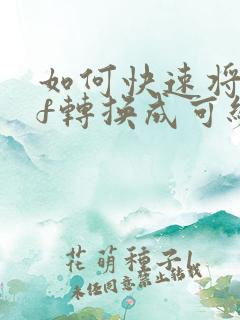 如何快速将
f轉換成可
花萌種子l
未经同意禁止转载